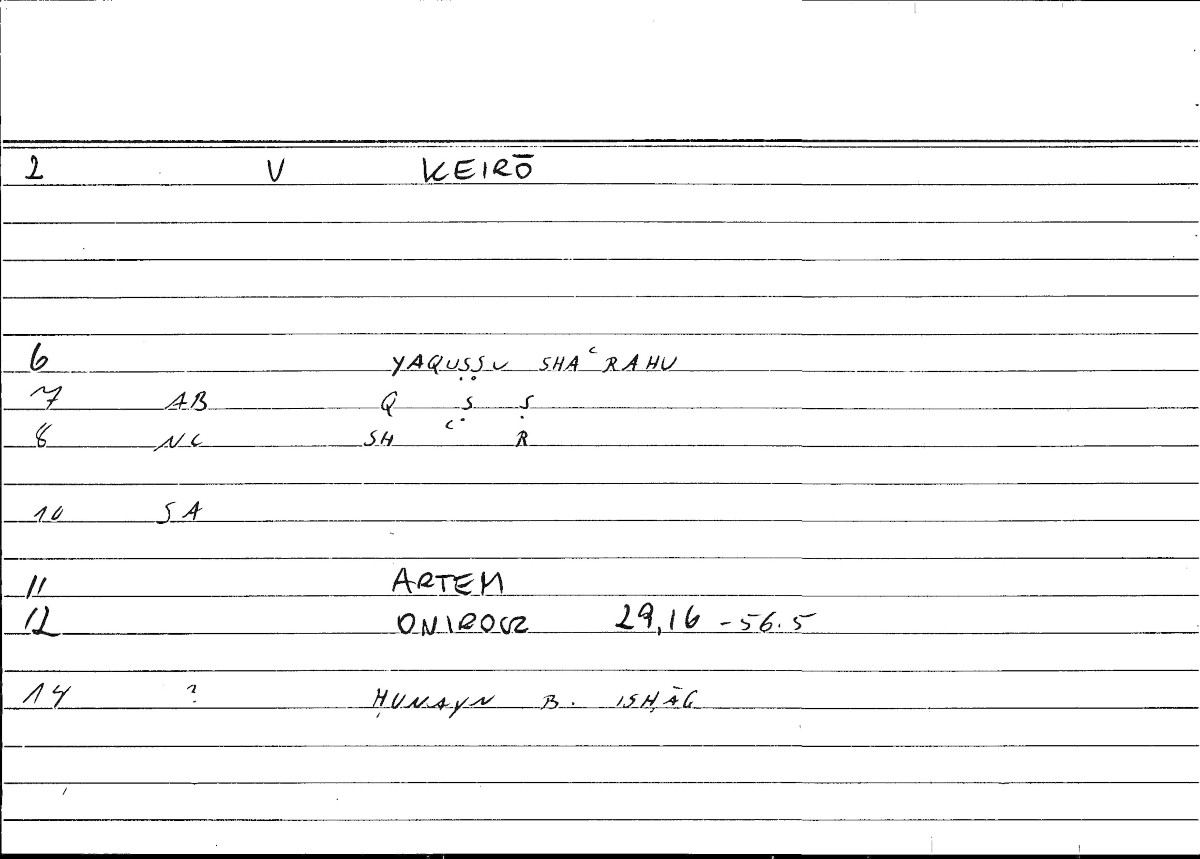 2 V KEIRŌ
6 YAQUṢṢU SHAʿRAHU
7 AB Q Ṣ Ṣ
8 NC SH ʿ R
10 SA
11 ARTEM
12 ONIROCR 29,16 - 56.5
14 ? ḤUNAYN B. ISḤĀG